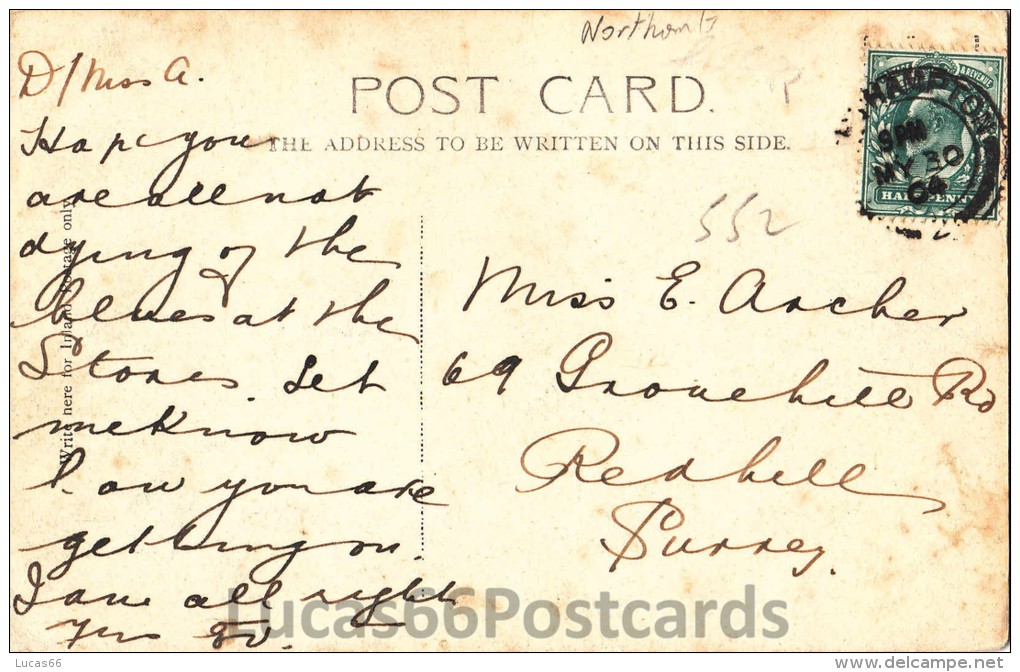 Northam
D/Miss A.
POST CARD.
THE ADDRESS TO BE WRITTEN ON THIS SIDE.
HAMPTON
9PM
MY 30
04
& REVENUE
HALFPENNY
552
Hope you
are all not
dying of the
blues at the
Stores. Let
me know
how you are
getting on.
I am all right
Write here for Inland Postage only
Miss E. Archer
69 Grovehill Rd
Redhill
Surrey.
Lucas66Postcards
Lucas66